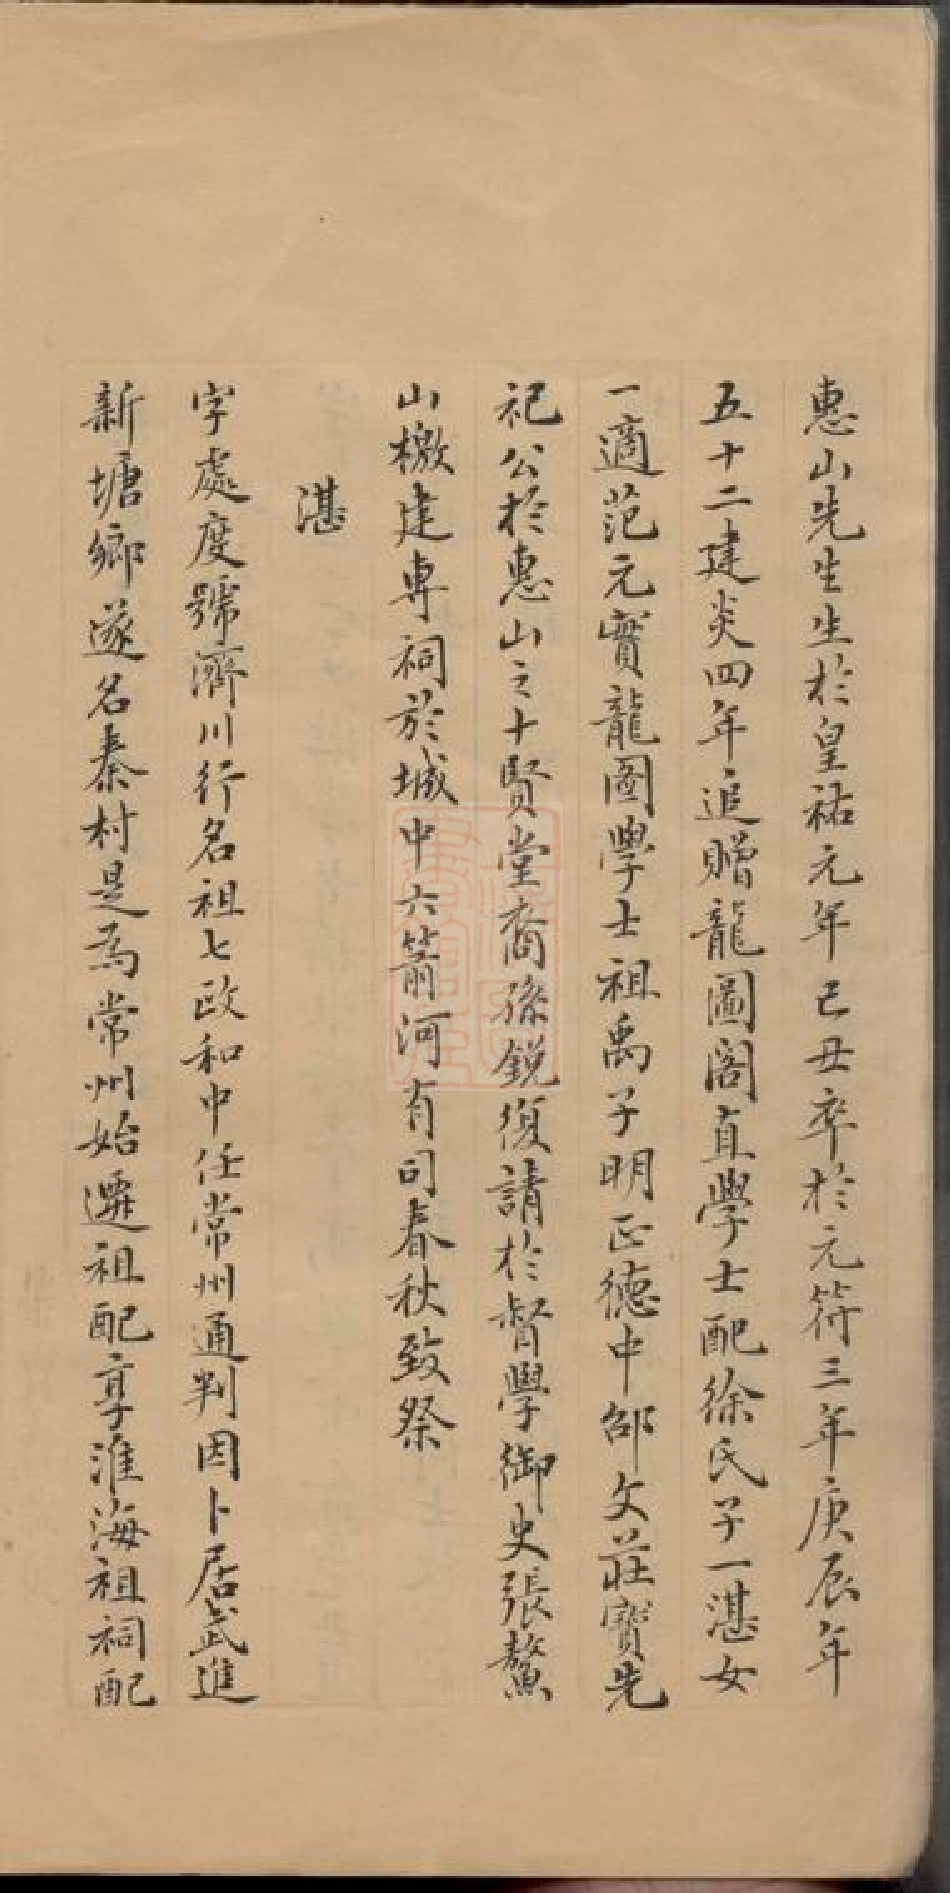 惠山先生生於皇祐元年己丑卒於元符三年庚辰年
五十二建炎四年追贈龍圖閣直學士配徐氏子一湛女
一適范元實龍圖學士祖禹子明正德中邵文莊寶先
祀公於惠山之十賢堂裔孫銳復請於督學御史張鰲
山檄建專祠於城中六箭河有司春秋致祭
湛
字處度號濟川行名祖七政和中任常州通判因卜居武進
新塘鄉遂名秦村是為常州始遷祖配享淮海祖祠配